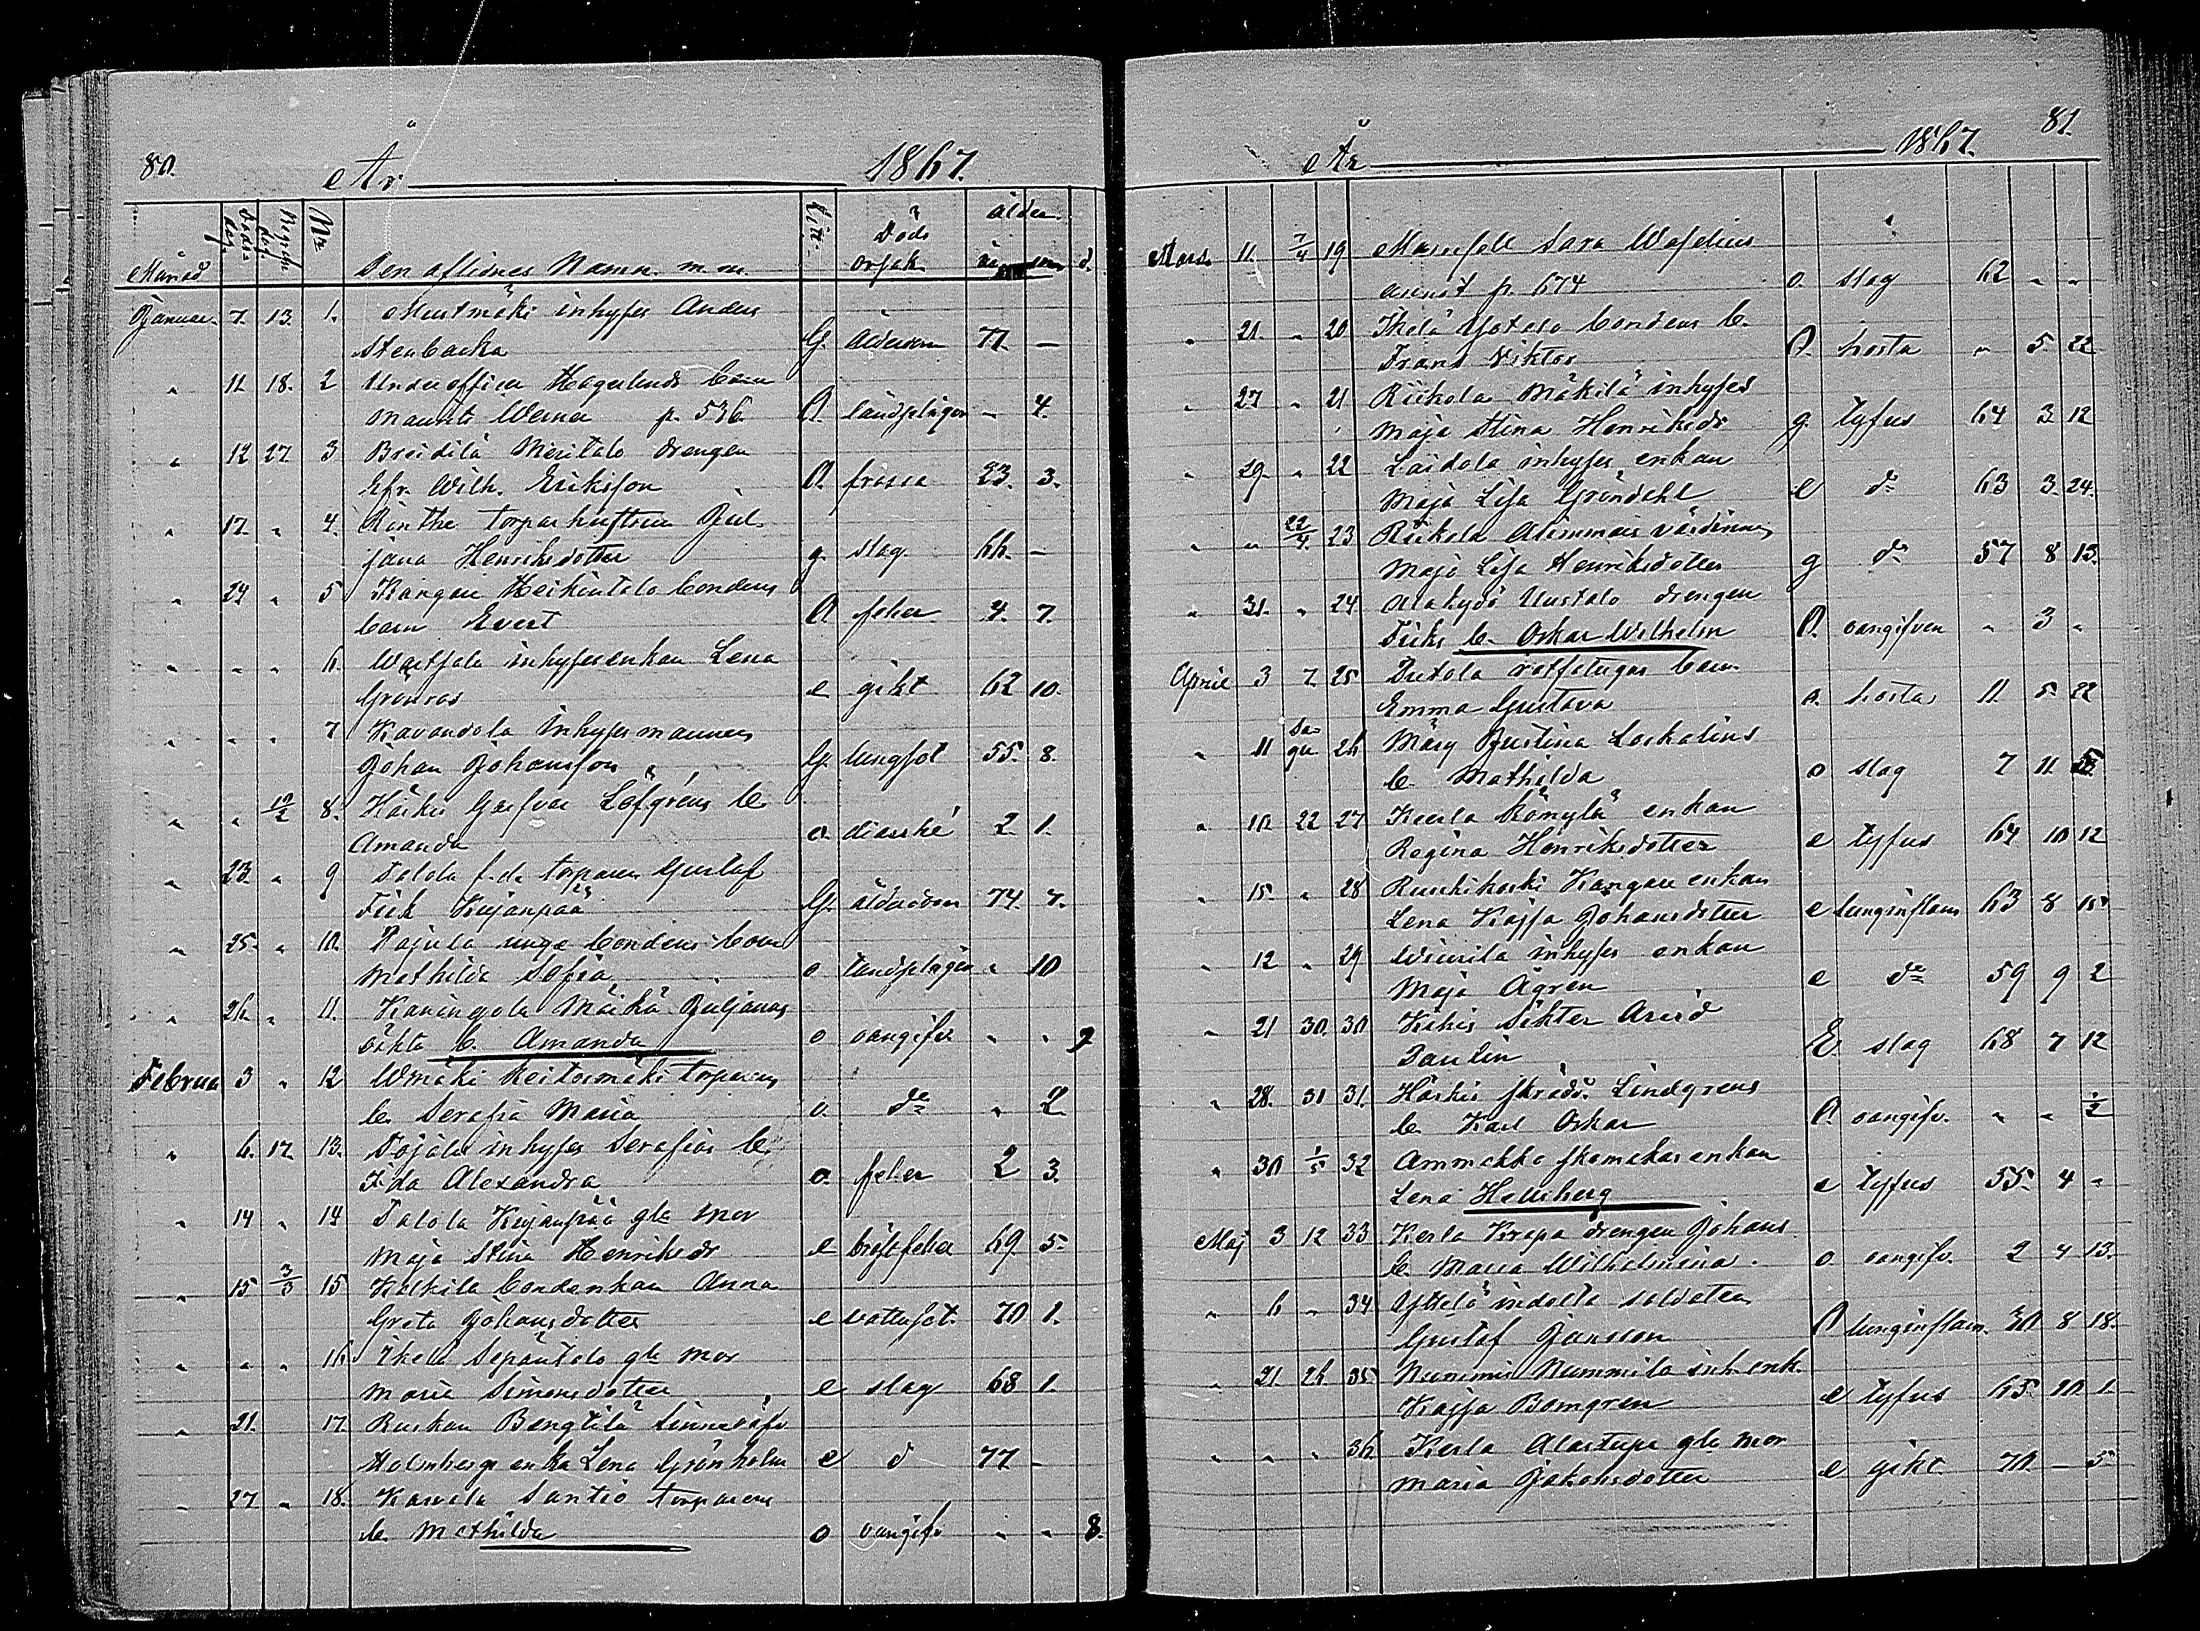 80.
År 1867.
Månad Döds dag. Begrafn. dag. No Den aflidnes Namn m.m. Litt. Döds orsak ålder. år m d.
Januar. 7. 13. 1. Mustmäki inhyses Anders
Stenbacka G. ålderdom 77. —
" 11 18. 2 Underofficer Hagerlunds barn
Maurits Werner p. 536 O. landplågan – 4.
" 12 27 3 Breidilä Meritalo drengen
Efr. Wilh. Eriksson O. frossa 23. 3.
" 17. " 4. torparhustrun Jul
jana Henriksdotter g. slag. 66. –
" 24 " 5 Kangais Heikintalo bondens
barn Evert O feber 4. 7.
" " " 6. inhysesenkan Lena
Grönroos e gikt 62 10.
" " " 7 inhyses mannen
Johan Johansson G. lungsot 55. 8.
" " 10/2 8. Löfgrens b.
Amanda o. diarrhé 2. 1.
" 23. " 9 Talola f.d. torparen Gustaf
Kujanpää G. ålderdom 74. 7.
" 25. " 10. Pajula unga bondens barn
Mathilda Sofia o. landplågan " 10
" 26. " 11. Juljanas
b. Amanda o oangifv. " " 2
Februa 3 " 12 torparens
b. Serafia Maria o. do " 2
" 6. 17. 13. inhyses Serafias b.
Ida Alexandra o. feber 2 3.
" 14 " 14 Talola Kujanpää gla mor
Maja Stina Henriksdr e bröstfeber 69. 5.
" 15 3/3 15 bondenkan Anna
Greta Johansdotter e vattusot. 70 1.
" " " 16 Ihela Sepäntalo gla mor
Maria Simonsdotter e slag 68 1.
" 21. 17. Ruskon Bengtilä
Holmbergs enka Lena Grönholm e d 77 –
" 27 " 18. Karvela Santio torparens
b. Mathilda o oangifv " " 8.
81.
År 1867.
Mars. 11. 7/4 19 Mamsell Sara
p. 674 o. slag 62 " "
" 21. " 20 Ihela Yotalo bondens b.
Frans Viktor O. hosta " 5. 22
" 27 " 21 Riihola Mäkilä inhyses
Maja Stina Henriksdr g. tyfus 64 3. 12
" 29. " 22 Laidola inhyses enkan
Maja Lisa Gröndahl e do 63 3. 24.
" " 22/4. 23 värdinnan
Maja Lisa Henriksdotter g do 57 8 13.
" 31. " 24 Alakylö Uustalo drengen
b. Oskar Wilhelm O. oangifven " 3 "
April 3 7 25 rotfattigas barn
Emma Gustava o. hosta 11. 5. 22
" 11 26 Justina
b. Mathilda o slag 7 11.
" 10. 22 27 Kömylä enkan
Regina Henriksdotter e tyfus 64 10 12
" 15. " 28 Ruskikoski Kangas enkan
Lena Kajsa Johansdotter e lunginflam 63 8 15
" 12 " 29 inhyses enkan
Maja Ågren e do 59 9 2
" 21 30. 30
Paulin E. slag 68 7 12
" 28. 31 31. Lindgrens
b. Karl Oskar O. oangifv. " " 1/2
" 30 1/5 32 skomakarenkan
Lena Hellberg e tyfus 55. 4 "
Maj 3 12 33. drengen Johans
b. Maria Wilhelmina. o oangifv. 2 4 13.
" 6 " 34 indelta soldaten
Gustaf Jansson O lunginflam. 30 8 18.
" 21. 26. 35 Nummis Nummila inh. enk.
Kajsa Bomgren e tyfus 65. 10. 1.
" " " 36. gla mor
Maria Jakobsdotter e gikt. 70. – 5